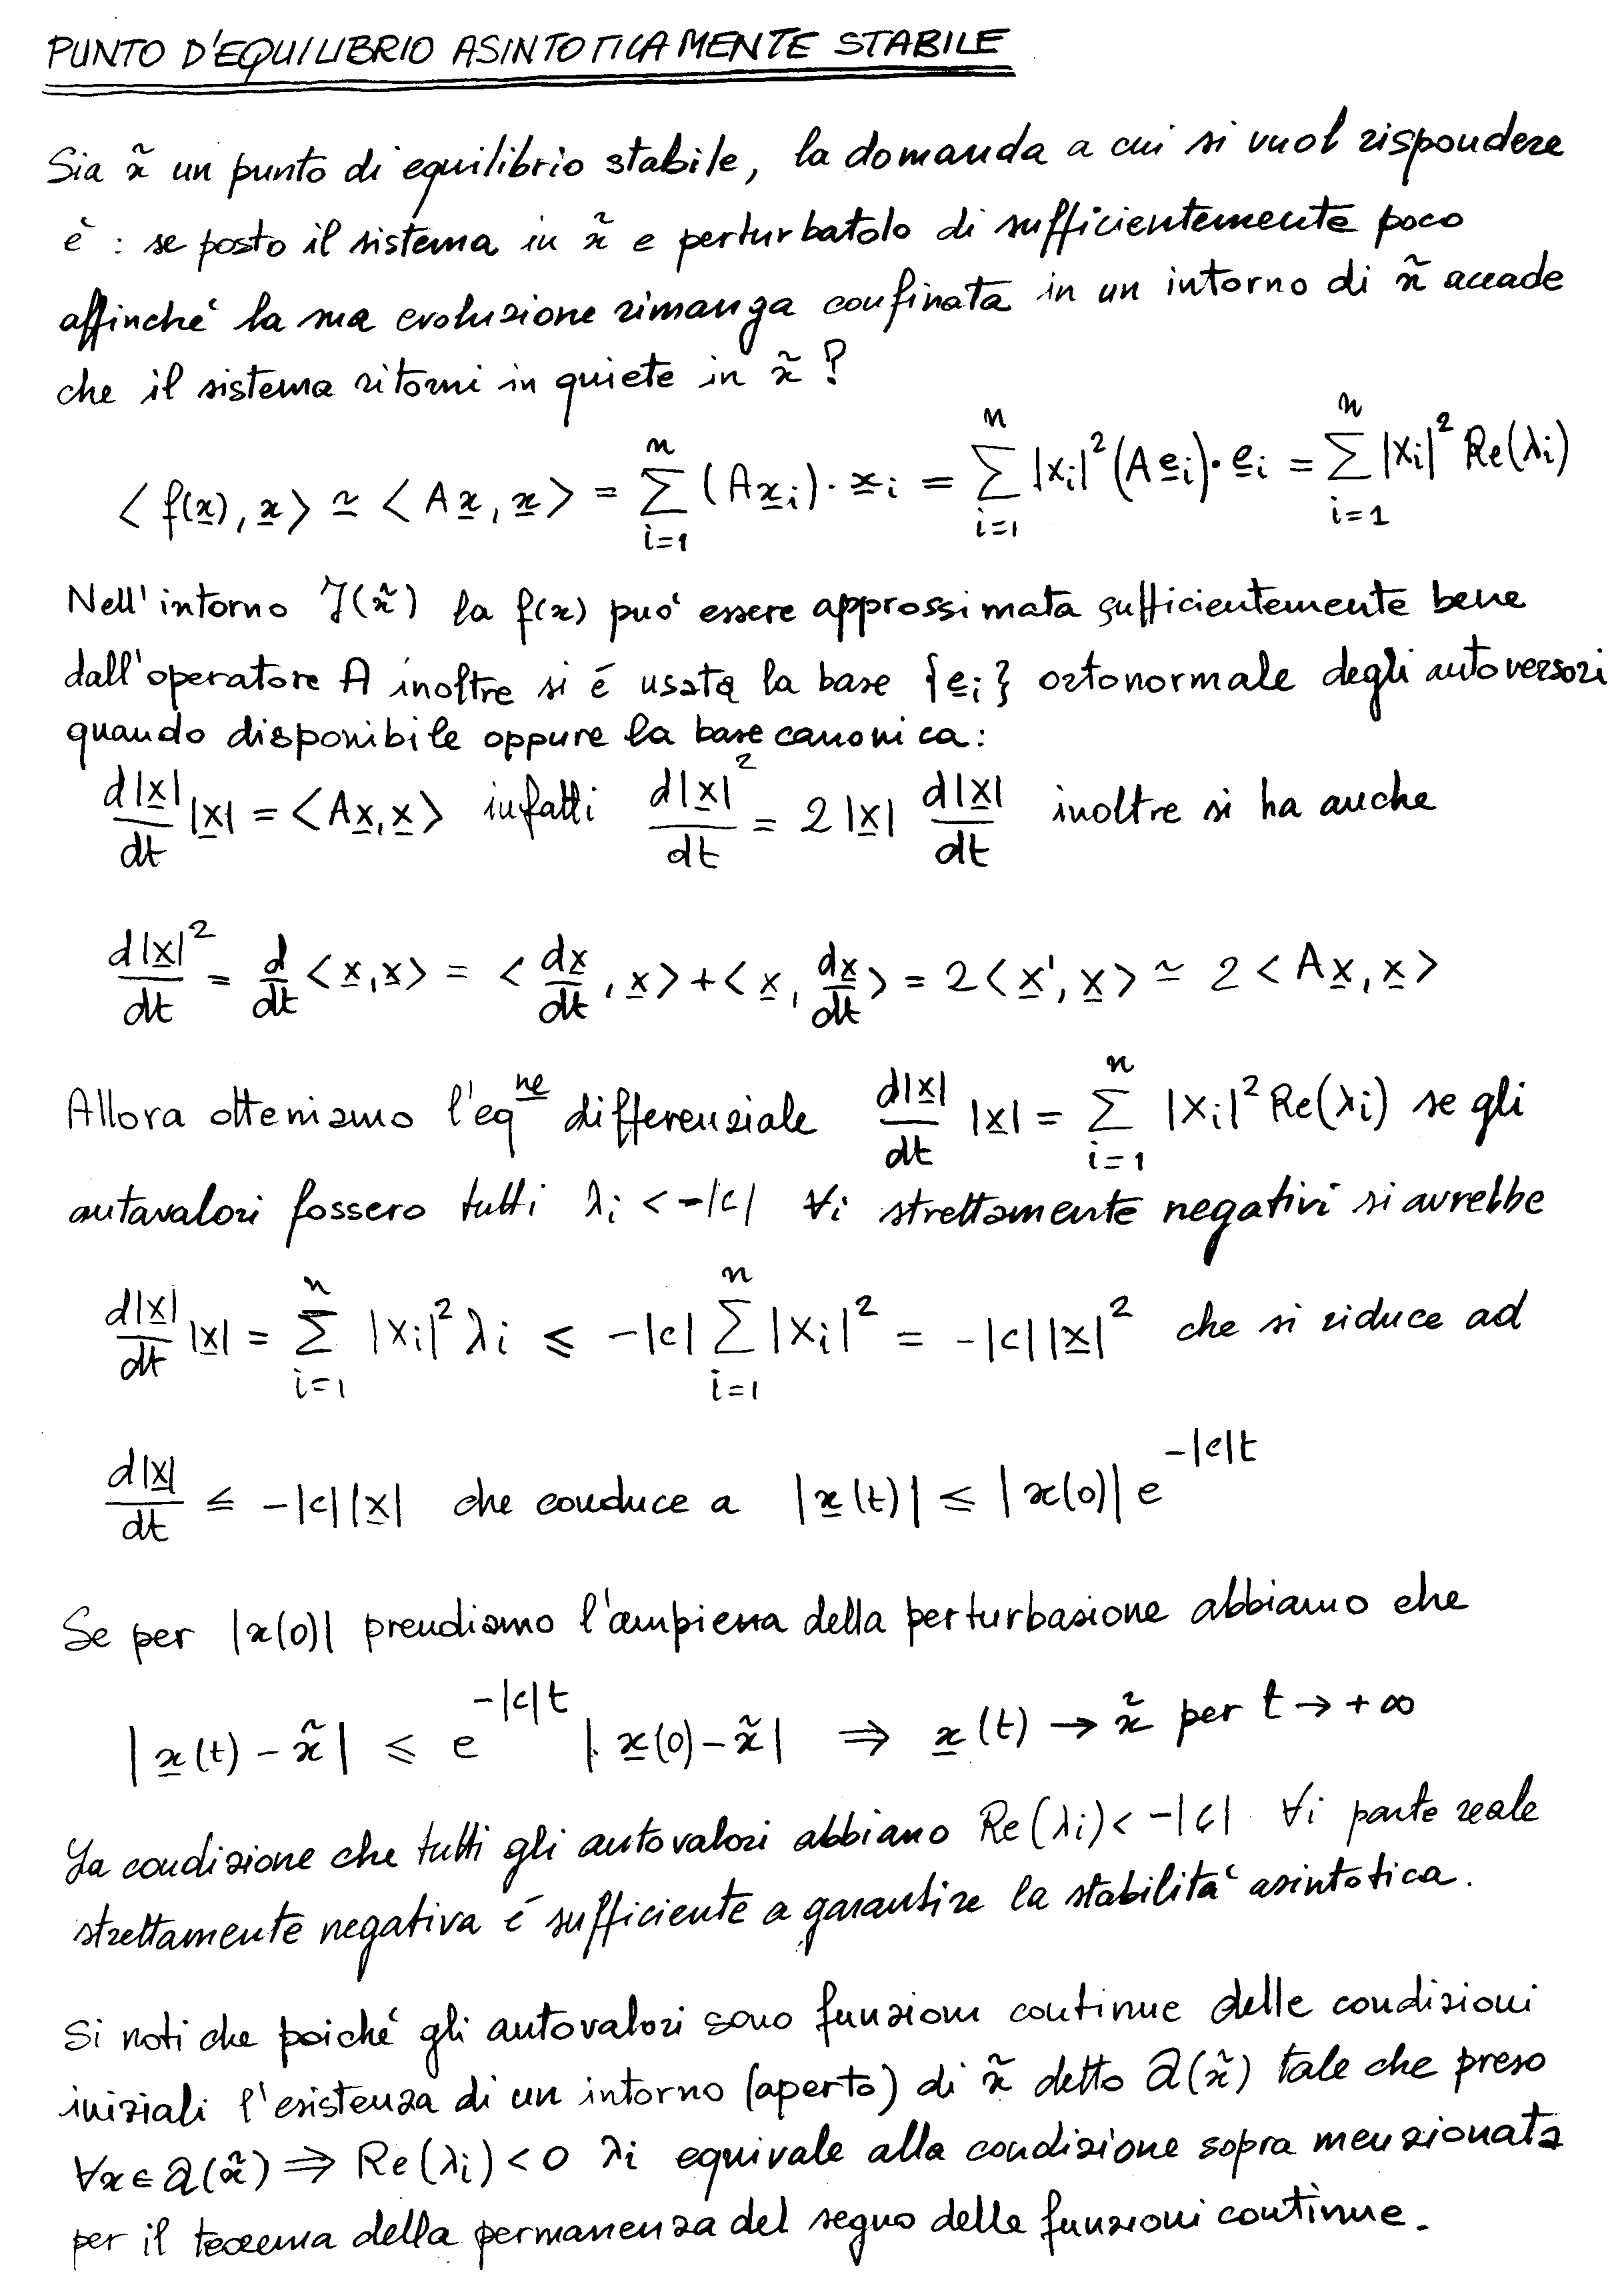 PUNTO D'EQUILIBRIO ASINTOTICAMENTE STABILE
Sia x̃ un punto di equilibrio stabile, la domanda a cui si vuol rispondere
è : se posto il sistema in x̃ e perturbatolo di sufficientemente poco
affinché la sua evoluzione rimanga confinata in un intorno di x̃ accade
che il sistema ritorni in quiete in x̃ ?
< f(x), x > ≃ < A x, x > = Σ_{i=1}^{n} (A x_i) · x_i = Σ_{i=1}^{n} |x_i|² (A e_i) · e_i = Σ_{i=1}^{n} |x_i|² Re(λi)
Nell'intorno I(x̃) la f(x) può essere approssimata sufficientemente bene
dall'operatore A inoltre si é usata la base {e_i} ortonormale degli autoversori
quando disponibile oppure la base canonica:
d|x|/dt |x| = <Ax, x> infatti d|x|²/dt = 2 |x| d|x|/dt inoltre si ha anche
d|x|²/dt = d/dt <x, x> = < dx/dt , x> + < x, dx/dt > = 2 < x', x > ≃ 2 < A x, x >
Allora otteniamo l'eq^ne differenziale d|x|/dt |x| = Σ_{i=1}^{n} |x_i|² Re(λi) se gli
autavalori fossero tutti λi < -|c| ∀i strettamente negativi si avrebbe
d|x|/dt |x| = Σ_{i=1}^{n} |x_i|² λi ⩽ -|c| Σ_{i=1}^{n} |x_i|² = -|c| |x|² che si riduce ad
d|x|/dt ⩽ -|c| |x| che conduce a |x(t)| ⩽ |x(0)| e^{-|c|t}
Se per |x(0)| prendiamo l'ampiezza della perturbazione abbiamo che
|x(t) - x̃| ⩽ e^{-|c|t} |x(0) - x̃| ⇒ x(t) → x̃ per t → +∞
La condizione che tutti gli autovalori abbiano Re(λi) < -|c| ∀i parte reale
strettamente negativa é sufficiente a garantire la stabilità asintotica.
Si noti che poiché gli autovalori sono funzioni continue delle condizioni
iniziali l'esistenza di un intorno (aperto) di x̃ detto a(x̃) tale che preso
∀x ∈ a(x̃) ⇒ Re(λi) < 0 λi equivale alla condizione sopra menzionata
per il teorema della permanenza del segno delle funzioni continue.